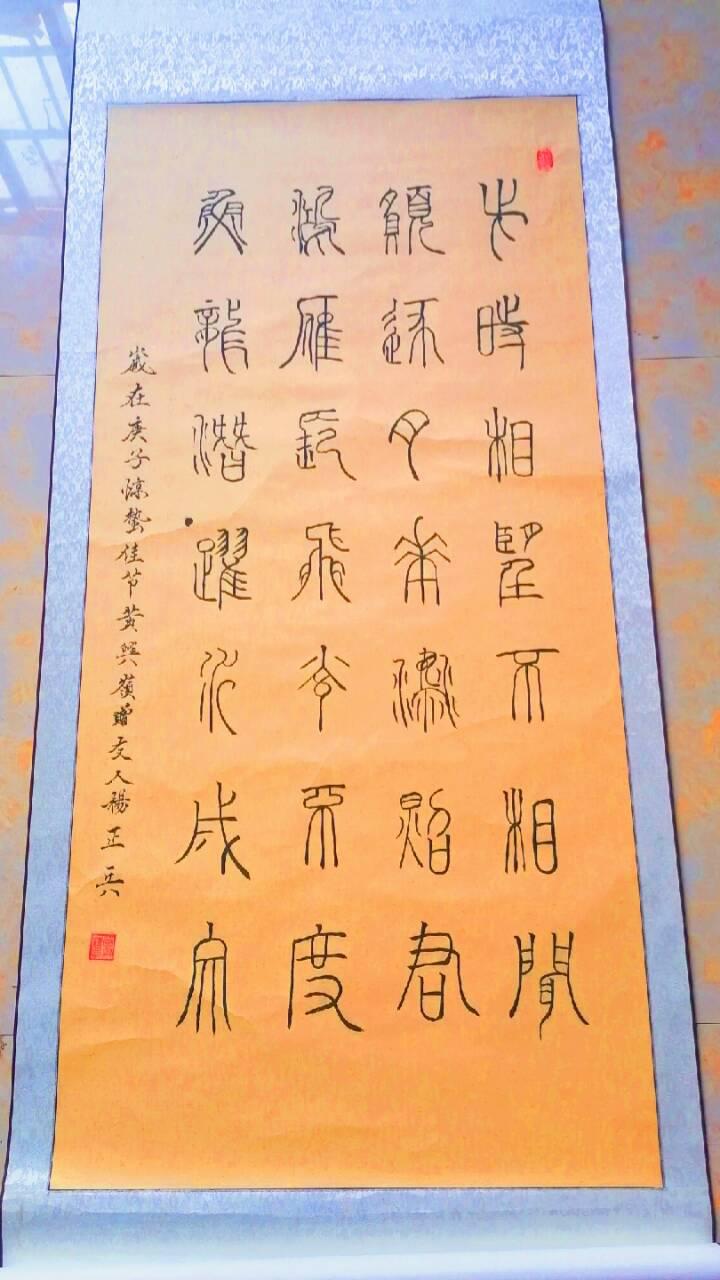 此時相望不相聞
願逐月華流照君
鴻雁長飛光不度
魚龍潛躍水成文
歲在庚子惊蟄佳节黄嶺贈友人楊正兵